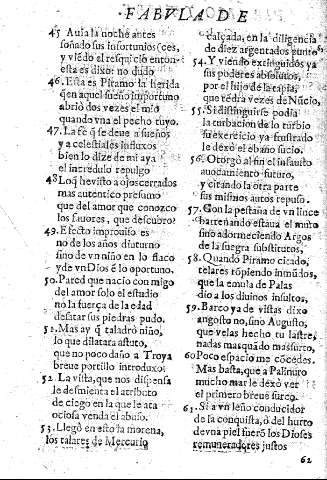 ·FABVLA DE
45 Auia la noche antes
soñado sus infortunios (ces,
y viẽdo el resquicio enton-
esta es dixo: no dudo
46. Esta es Piramo la herida
q̃en aquel sueño importuno
abrio dos vezes el mio
quando vna el pecho tuyo.
47. La fe q̃ se deue a sueños
y a celestiales influxos
bien lo dize de mi aya
el incredulo repulgo
48 Loq̃ he visto a ojos cerrados
mas autentico presumo
que del amor que conozco
los fauores, que descubro?
49. Efecto improuiso es
no de los años diuturno
sino de vn niño en lo flaco
y de vn Dios ẽ lo oportuno.
50. Pared que nacio con migo
del amor solo el estudio
no la fuerça de la edad
desatar sus piedras pudo.
51. Mas ay q̃ taladrò niño,
lo que dilatara astuto,
que no poco daño a Troya
breue portillo introduxo.
52. La vista, que nos dispensa
le desmienta el atributo
de ciego en la que le ata
ociosa venda el abuso.
53. Llegò en esto la morena,
los talares de Mercurio
calçada, en la diligencia
de diez argentados punto
54. Y viendo extinguidos ya
sus poderes absolutos,
por el hijo de la tapia,
que tẽdra vezes de Nucio,
55. Si distinguirse podia
la turbacion de lo turbio
su exercicio ya frustrado
le dexò el ebano sucio.
56. Otorgò al fin el infausto
auocamiento futuro,
y citando la otra parte
sus mismos autos repuso.
57. Con la pestaña de vn lince
barrenando estaua el muro
sino adormeciendo Argos
de la suegra substitutos,
58. Quando Piramo citado,
telares rõpiendo inmũdos,
que la emula de Palas
dio a los diuinos insultos,
59. Barco ya de vistas dixo
angosto no, sino Augusto,
que velas hecho tu lastre,
nadas mas quãdo mas surto.
60 Poco espacio me cõcedes.
Mas basta, que a Palinuro
mucho mar le dexò ver
el primero breue surco.
61. Si a vn leño conducidor
de la conquista, ò del hurto
de vna piel fuerõ los Dioses
remuneradores justos
62